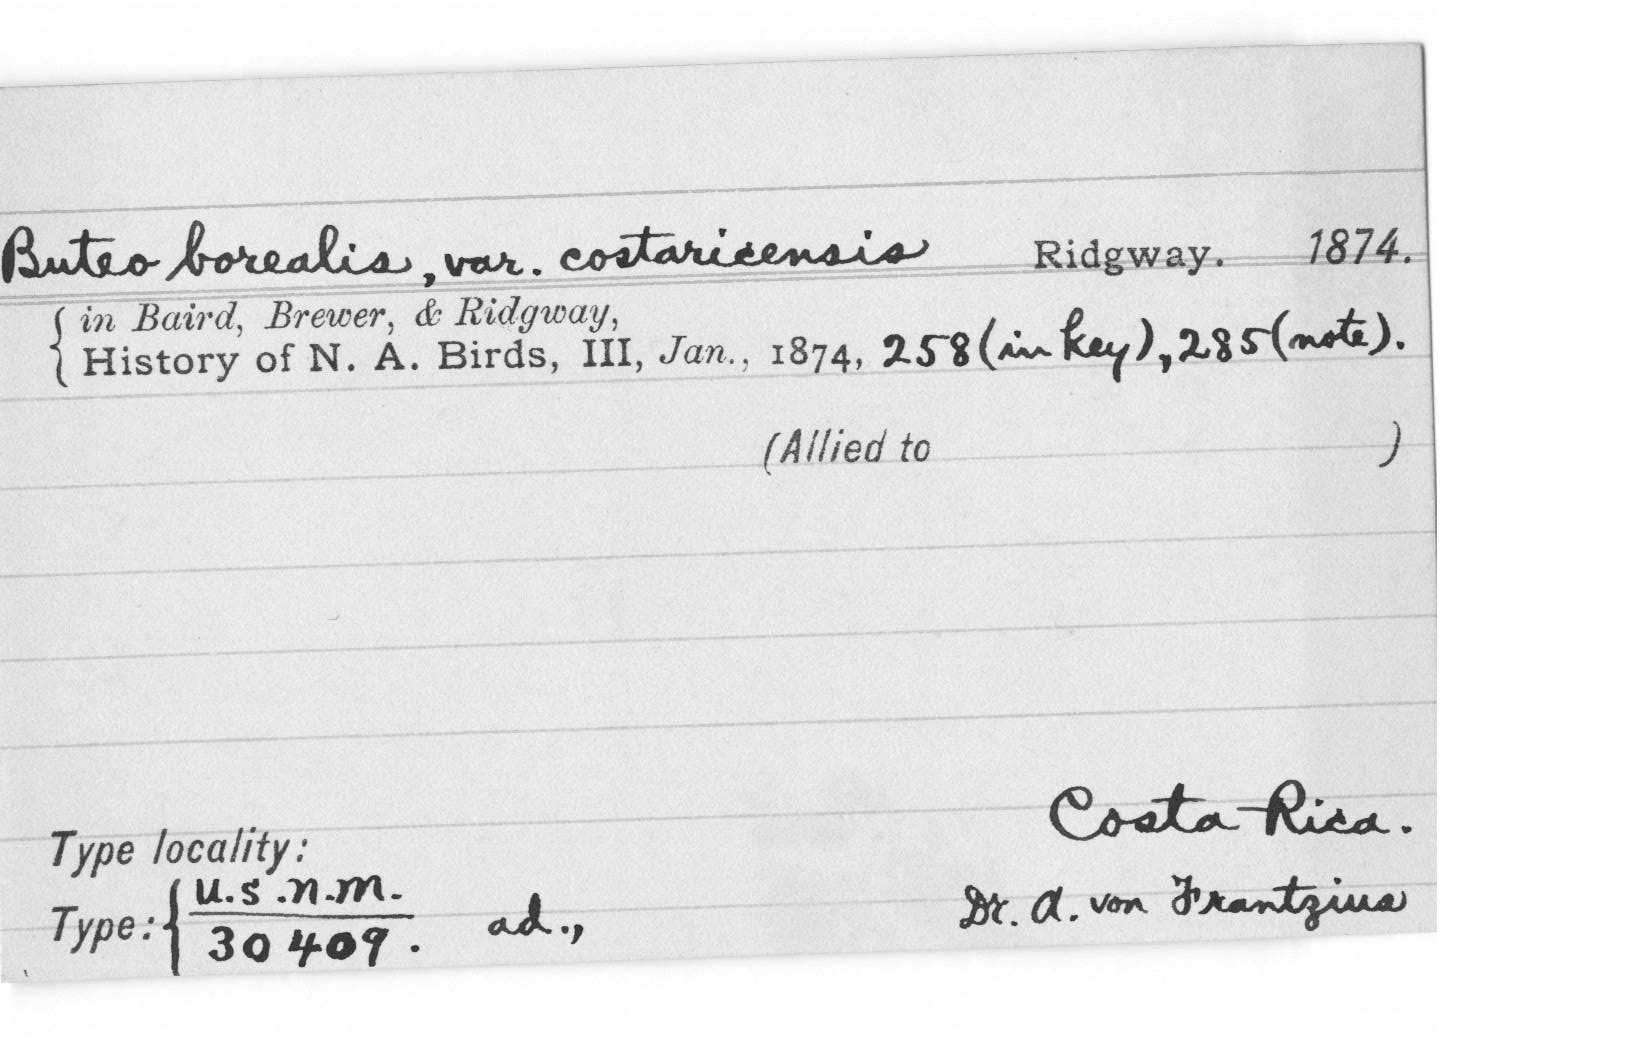 Buteo borealis, var. costaricensis Ridgway. 1874.
in Baird, Brewer, & Ridgway,
History of N. A. Birds, III, Jan., 1874, 258 (in key), 285 (note).
(Allied to )
Costa Rica.
Type locality:
Type: { U.S.N.M. 30409. ad., Dr. A. von Frantzius